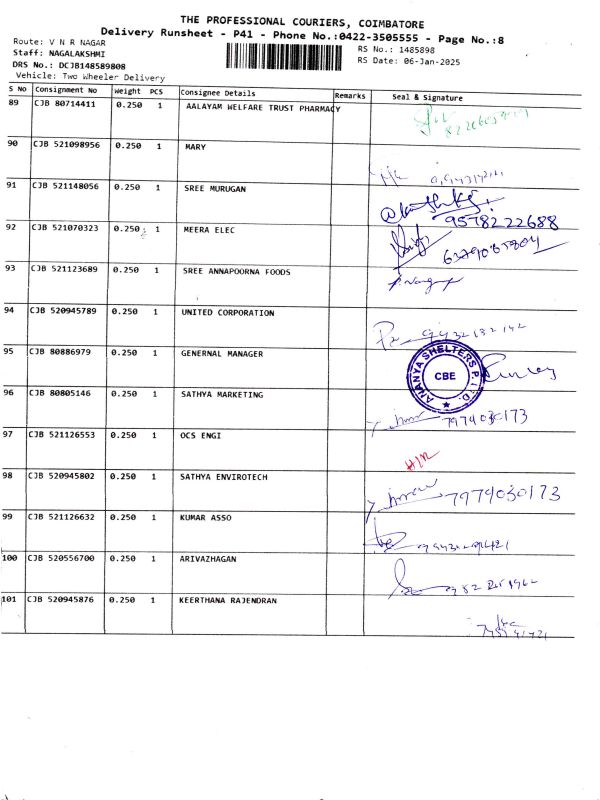 THE PROFESSIONAL COURIERS, COIMBATORE
Delivery Runsheet - P41 - Phone No.:0422-3505555 - Page No.:8
Route: V N R NAGAR
Staff: NAGALAKSHMI
DRS No.: DCJB148589808
Vehicle: Two Wheeler Delivery
RS No.: 1485898
RS Date: 06-Jan-2025
S No Consignment No Weight PCS Consignee Details Remarks Seal & Signature
89 CJB 80714411 0.250 1 AALAYAM WELFARE TRUST PHARMACY
90 CJB 521098956 0.250 1 MARY
91 CJB 521148056 0.250 1 SREE MURUGAN
9578222688
92 CJB 521070323 0.250 1 MEERA ELEC
93 CJB 521123689 0.250 1 SREE ANNAPOORNA FOODS
94 CJB 520945789 0.250 1 UNITED CORPORATION
95 CJB 80886979 0.250 1 GENERNAL MANAGER
ANANYA SHELTERS P. LTD.
CBE
96 CJB 80805146 0.250 1 SATHYA MARKETING
7974030173
97 CJB 521126553 0.250 1 OCS ENGI
98 CJB 520945802 0.250 1 SATHYA ENVIROTECH
7974030173
99 CJB 521126632 0.250 1 KUMAR ASSO
100 CJB 520556700 0.250 1 ARIVAZHAGAN
101 CJB 520945876 0.250 1 KEERTHANA RAJENDRAN